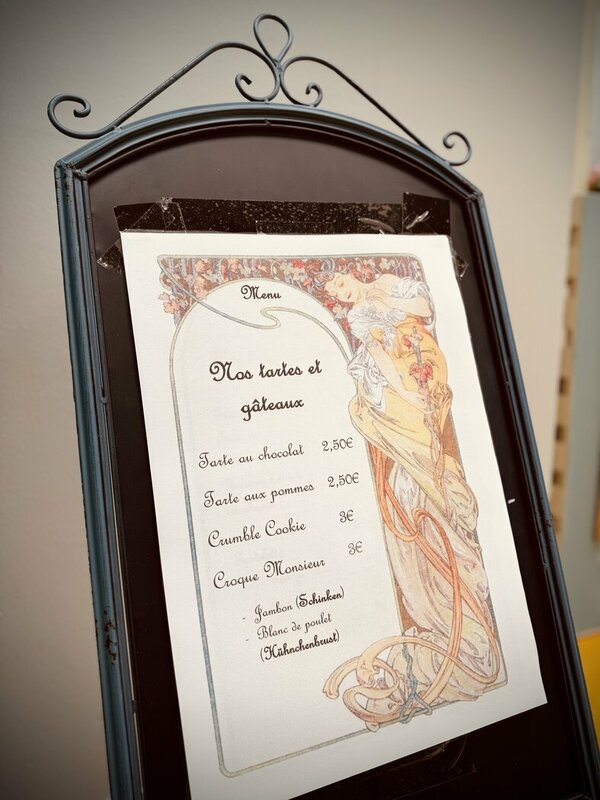 Menu
Nos tartes et
gâteaux
Tarte au chocolat 2,50€
Tarte aux pommes 2,50€
Crumble Cookie 3€
Croque Monsieur 3€
- Jambon (Schinken)
- Blanc de poulet
(Hühnchenbrust)